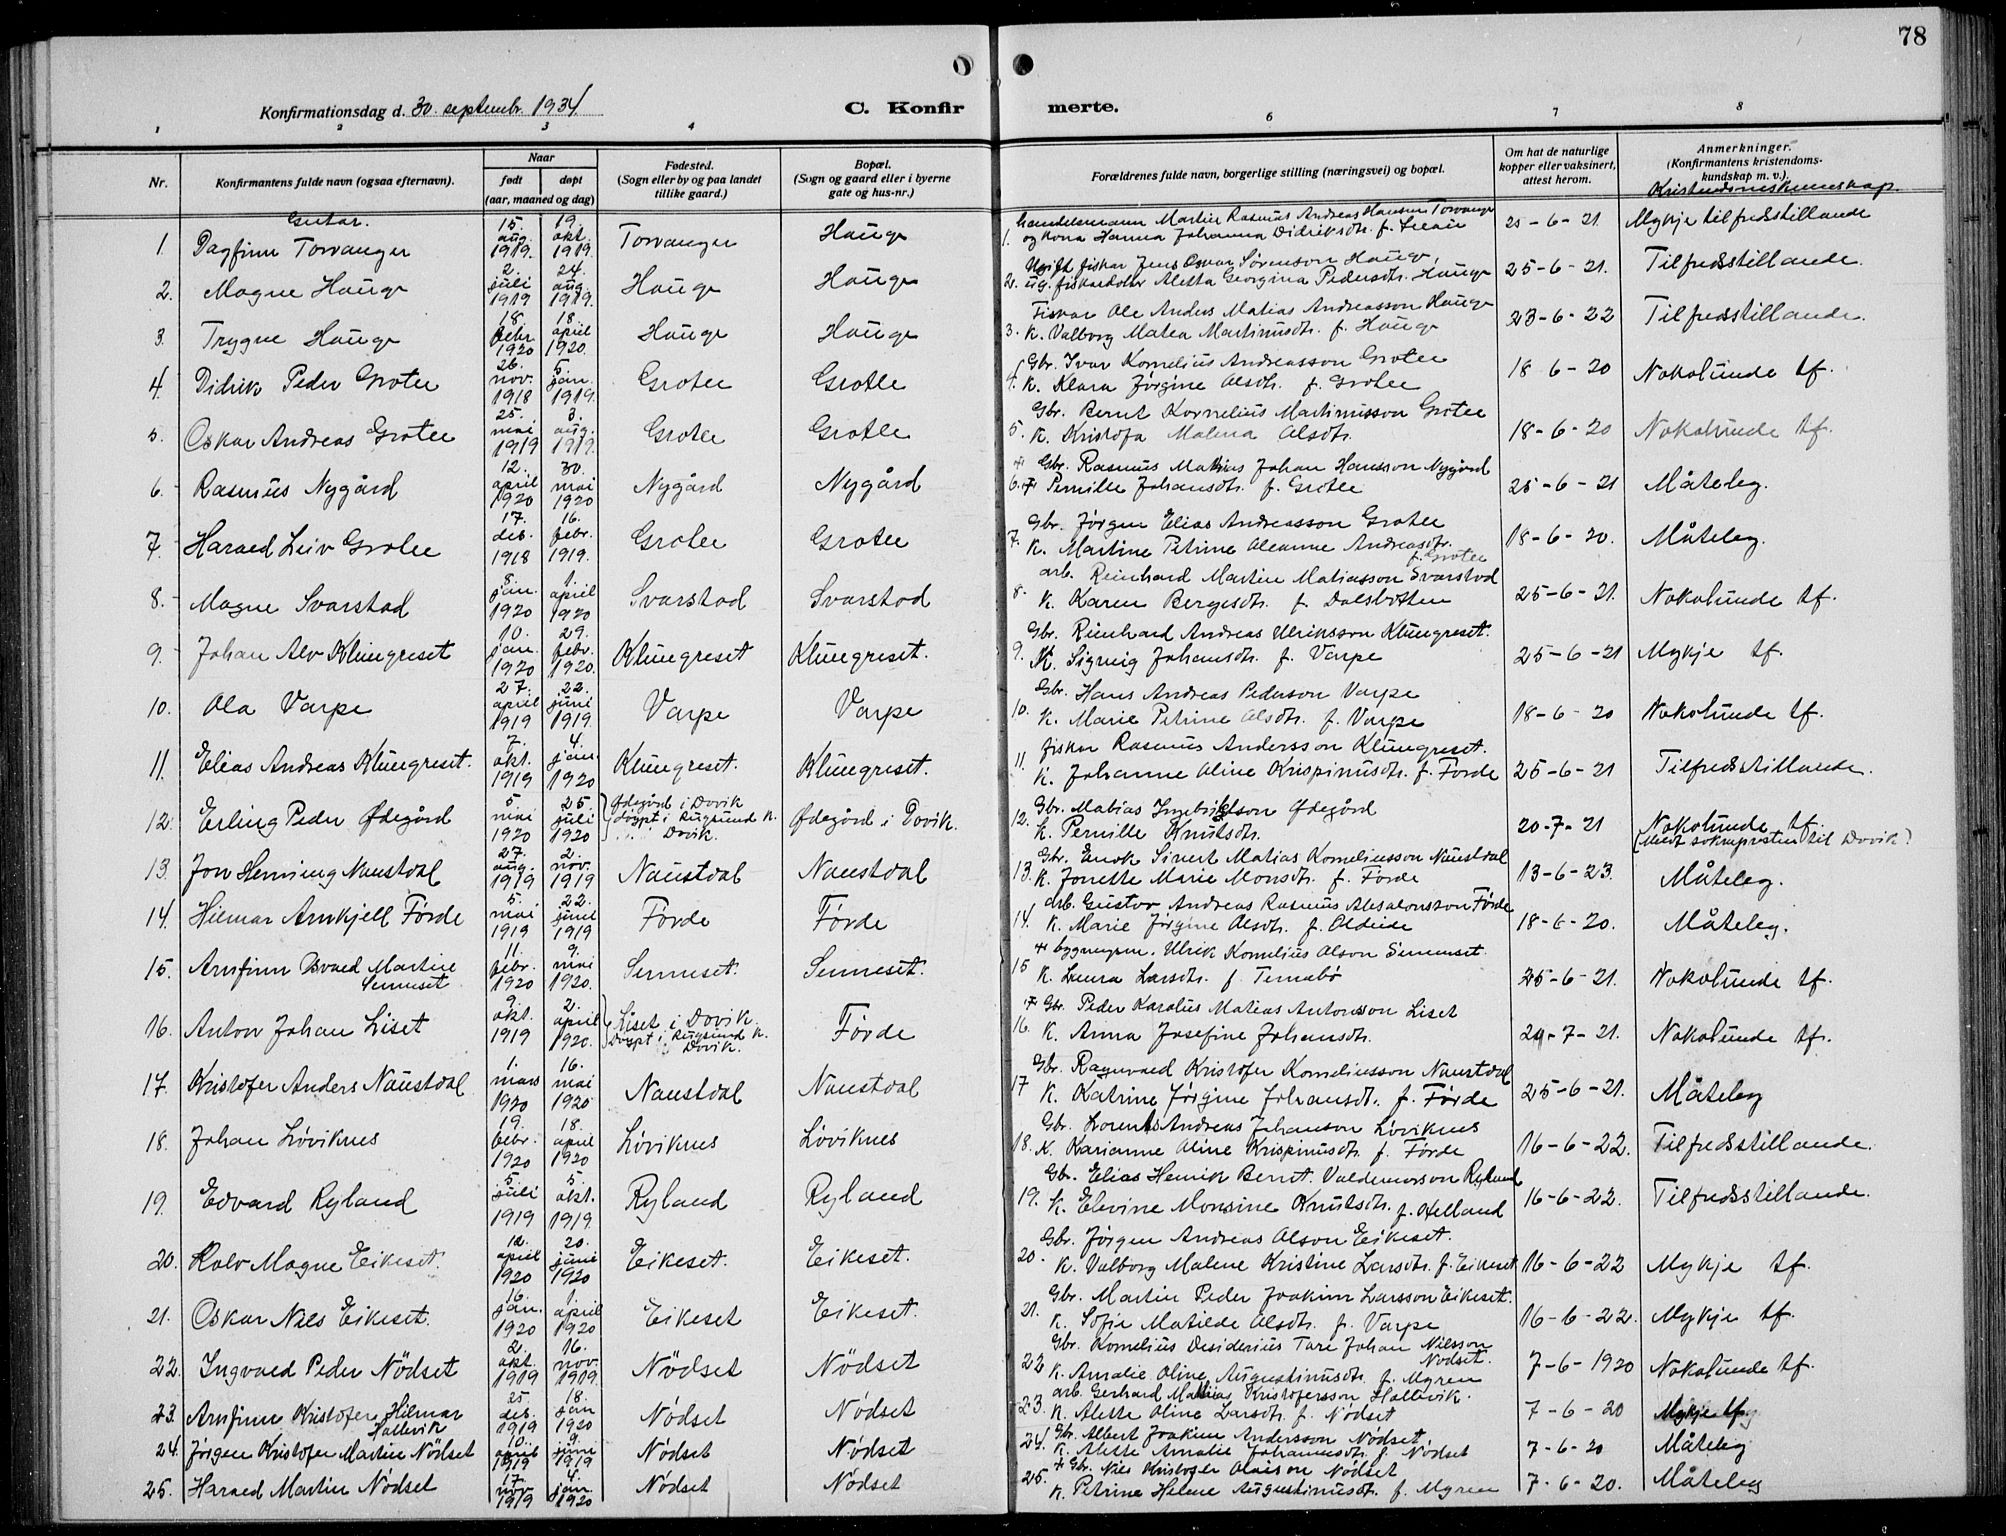 78
Konfirmationsdag d. 30. septembr. 1934.
C. Konfir
merte.
1 2 3 4 6 7 8
Nr.
Konfirmantens fulde navn (ogsaa efternavn).
Naar
født døpt
(aar, maaned og dag)
Fødested.
(Sogn eller by og paa landet
tillike gaard.)
Bopæl.
(Sogn og gaard eller i byerne
gate og hus-nr.)
Forældrenes fulde navn, borgerlige stilling (næringsvei) og bopæl.
Om hat de naturlige
kopper eller vaksinert,
attest herom.
Anmerkninger.
(Konfirmantens kristendoms-
kundskap m. v.)
Kristendomskunnskap.
Gutar.
1. Dagfinn Torvanger 15. aug. 1919. 19. okt. 1919. Torvanger Hauge
1. Handelsmann Martin Rasmus Andreas Hansen Torvanger
og kona Hanna Johanna Didriksdtr. f.
25-6-21. Mykje tilfredsstillande
2. Magne Hauge 2. juli 1919 24. aug. 1919. Hauge Hauge
Ugift fiskar Jens Oskar Sørenson Hauge,
2. ug. fiskardotter Aletta Georgina Pedersdtr. Hauge
25-6-21. Tilfredsstillande.
3. Trygve Hauge 18. febr. 1920 18. april 1920. Hauge Hauge
Fiskar Ole Anders Matias Andreasson Hauge
3. k. Valborg Matea Martinusdtr. f. Hauge
23-6-22 Tilfredsstillande.
4. Didrik Peder Grotle 26. nov. 1918 5. jan. 1919. Grotle Grotle
4. Gbr. Ivar Kornelius Andreasson Grotle
k. Klara Jørgine Olsdtr. f. Grotle
18-6-20 Nokolunde tf.
5. Oskar Andreas Grotle 25. mai 1919 3. aug. 1919. Grotle Grotle
Gbr. Bernt Kornelius Martinusson Grotle
5. k. Kristofa Malena Olsdtr.
18-6-20 Nokolunde tf.
6. Rasmus Nygård 12. april 1920 30. mai 1920 Nygård Nygård
Gbr. Rasmus Matias Johan Hansson Nygård
6. Pernille Johansdtr. f. Grotle
25-6-21 Måteleg.
7. Harald Leiv Grotle 17. des. 1918 16. febr. 1919. Grotle Grotle
Gbr. Jørgen Elias Andreasson Grotle
7. k. Martine Petrine Oleanne Andreasdtr.
f. Grotle
18-6-20. Måteleg.
8. Magne Svarstad 8. jan. 1920 1. april 1920 Svarstad Svarstad
arb. Reinhard Martin Matiasson Svarstad
8. k. Karen Bergesdtr. f. Dalsbotten
25-6-21. Nokolunde tf.
9. Johan Alv Klungreset 10. jan. 1920 29. febr. 1920. Klungreset Klungreset.
Gbr. Reinhard Andreas Ulriksson Klungreset.
9. k. Signig Johansdtr. f. Varpe
25-6-21 Mykje tf.
10. Ola Varpe 27. april 1919 22. juni 1919. Varpe Varpe
Gbr. Hans Andreas Pederson Varpe
10. k. Marie Petrine Olsdtr. f. Varpe
18-6-20 Nokolunde tf.
11. Elias Andreas Klungreset. 7. okt. 1919 4. jan. 1920 Klungreset. Klungreset.
fiskar Rasmus Andersson Klungreset.
11. k. Johanne Oline Krispinusdtr. f. Førde
25-6-21 Tilfredsstillande.
12. Erling Peder Ødegård 5. mai 1920 25. juli 1920 Ødegård i Davik
døypt i Rugsund k.
i Davik. Ødegård i Davik.
12. Gbr. Matias Ingebrigtson Ødegård
k. Pernille Knutsdtr.
20-7-21 Nokolunde tf.
(Meldt soknepresten til Davik)
13. Jon Henning Naustdal 27. aug. 1919 2. nov. 1919 Naustdal Naustdal
Gbr. Enok Sivert Matias Korneliusson Naustdal
13. k. Jonette Marie Monsdtr. f. Førde
13-6-23. Måteleg.
14. Hilmar Arnkjell Førde 5. mai 1919 22. juni 1919 Førde Førde
arb. Gustav Andreas Rasmus Absalonsson Førde
14. k. Marie Jørgine Olsdtr. f. Aldeide
18-6-20. Måteleg.
15. Arnfinn Osvald Martin
Senneset 11. febr. 1920 9. mai 1920. Senneset. Senneset.
bygningsm. Ulrik Kornelius Olson Senneset.
15 k. Laura Larsdtr. f. Ternebø
25-6-21. Nokolunde tf.
16. Anton Johan Liset 9. okt. 1919 2. april 1920. Liset i Davik.
Døypt i Rugsund k.
Davik. Førde
Gbr. Peder Karolus Matias Antonsson Liset
16. k. Anna Josefine Johansdtr.
20-7-21. Nokolunde tf.
17. Kristofer Anders Naustdal 1. mars 1920 16. mai 1920 Naustdal Naustdal
Gbr. Ragnvald Kristofer Korneliusson Naustdal
17 k. Katrine Jørgine Johansdt. f. Førde
25-6-21. Måteleg
18. Johan Løviknes 19. febr. 1920 18. april 1920 Løviknes Løviknes
Gbr. Lorents Andreas Johanson Løviknes
18. k. Karianne Oline Krispinusdtr. f. Førde
16-6-22. Tilfredsstillande.
19. Edvard Ryland 5. juli 1919 5. okt. 1919. Ryland Ryland
Gbr. Elias Henrik Bernt Valdemarson Ryland
19. k. Elevine Monsine Knutsdtr. f. Helland
16-6-22. Tilfredsstillande.
20. Rolv Magne Eikeset. 12. april 1920 20. juni 1920 Eikeset. Eikeset.
Gbr. Jørgen Andreas Olson Eikeset.
20. k. Valborg Malene Kristine Larsdtr. f. Eikeset
16-6-22 Mykje tf.
21. Oskar Nils Eikeset. 16. jan. 1920 1. april 1920 Eikeset Eikeset.
Gbr. Martin Peder Joakim Larsson Eikeset.
21. k. Sofie Matilde Olsdtr. f. Varpe
16-6-22. Mykje tf.
22. Ingvald Peder Nødset 2. okt. 1919 16. nov. 1919. Nødset Nødset
Gbr. Kornelius Desiderius Tari Johan Nilsson
Nødset.
22. k. Amalie Oline Augustinusdtr. f. Myren
7-6-1920 Nokolunde tf.
23. Arnfinn Kristofer Hilmar
Hallevik 25. des. 1919 18. jan 1920 Nødset Nødset
arb. Gerhard Mathias Kristofersson Hallevik.
23. k. Alette Oline Larsdtr. f. Nødset
7-6-20 Mykje tf.
24. Jørgen Kristofer Martin Nødset 10. april 1919 9. juni 1919 Nødset Nødset
Gbr. Albert Joakim Andersson Nødset.
24. k. Alette Amalie Johannesdtr. f. Nødset
7-6-20 Måteleg
25. Harald Martin Nødset 17. nov. 1919 4. jan. 1920 Nødset Nødset
Gbr. Nils Kristofer Olaison Nødset
25. k. Petrine Helene Augustinusdtr. f. Myren
7-6-20. Måteleg